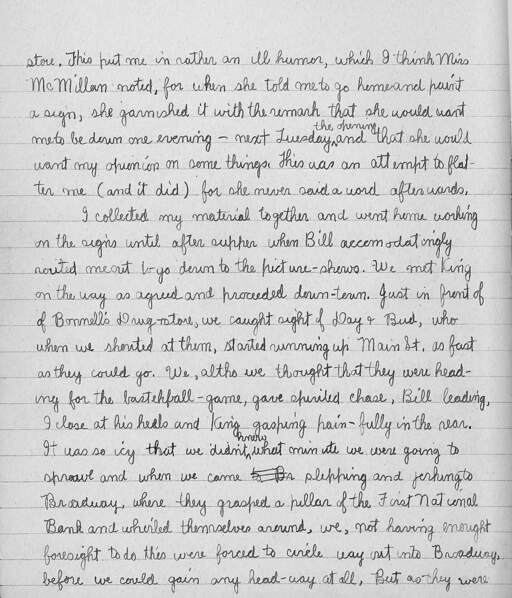 store. This put me in rather an ill humor, which I think Miss
McMillan noted, for when she told me to go home and paint
a sign, she garnished it with the remark that she would want
me to be down one evening – next Tuesday, the opening and that she would
want my opinion on some things. This was an attempt to flat-
ter me (and it did) for she never said a word afterwards.
I collected my material together and went home working
on the signs until after supper when Bill accomodatingly
routed me out to go down to the picture-shows. We met King
on the way as agreed and proceeded down-town. Just in front of
of Bonnell's Drug-store, we caught sight of Day & Bud, who
when we shouted at them, started running up Main St. as fast
as they could go. We, altho we thought that they were head-
ing for the basketball-game, gave spirited chase, Bill leading,
I close at his heels and King gasping pain-fully in the rear.
It was so icy that we didn't know what minute we were going to
sprawl and when we came slipping and jerking to
Broadway, where they grasped a pillar of the First National
Bank and whirled themselves around, we, not having enought
foresight to do this were forced to circle way out into Broadway,
before we could gain any head-way at all, But as they were